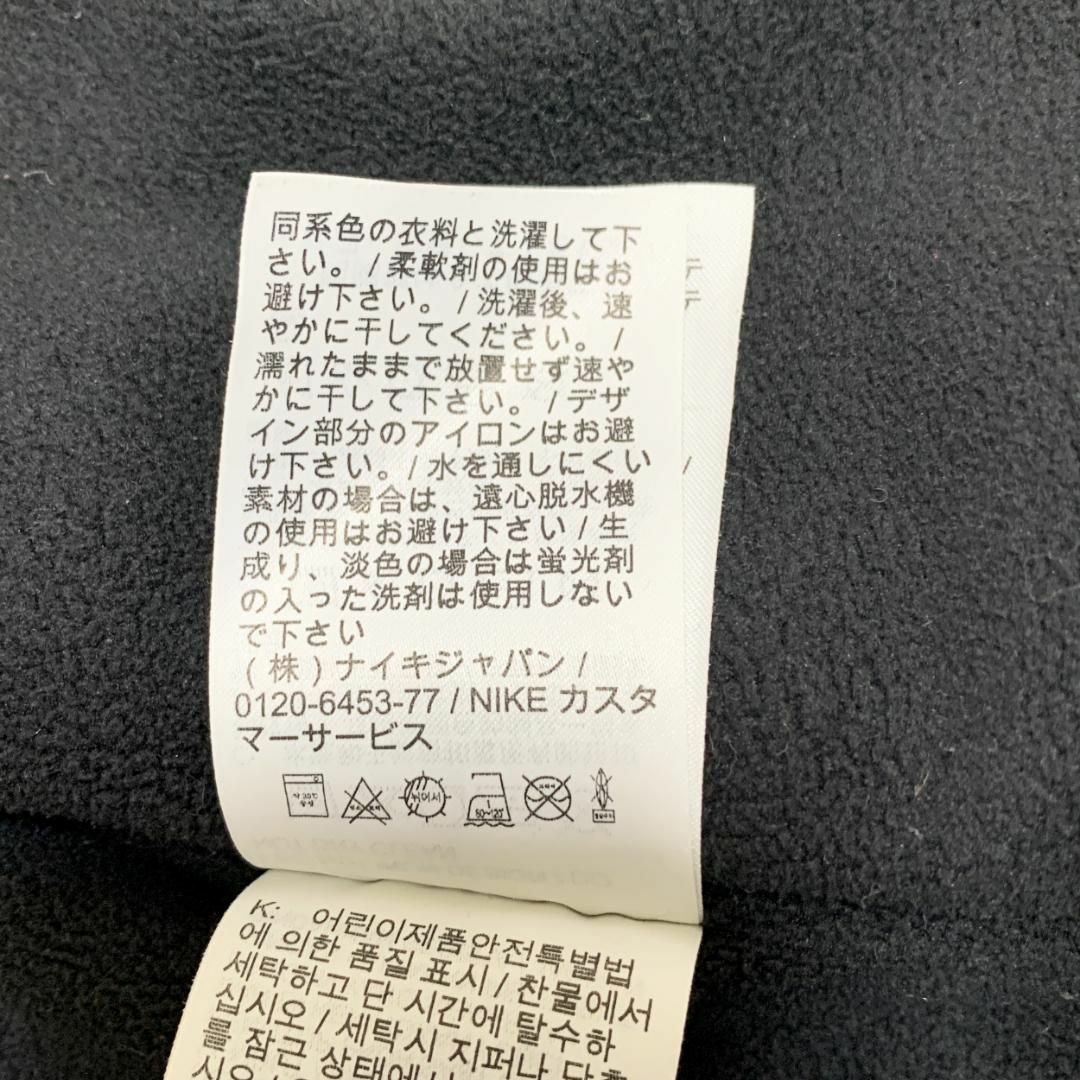 同系色の衣料と洗濯して下
さい。/柔軟剤の使用はお
避け下さい。/洗濯後、速
やかに干してください。/
濡れたままで放置せず速や
かに干して下さい。/デザ
イン部分のアイロンはお避
け下さい。/水を通しにくい
素材の場合は、遠心脱水機
の使用はお避け下さい/生
成り、淡色の場合は蛍光剤
の入った洗剤は使用しない
で下さい
(株)ナイキジャパン/
0120-6453-77 / NIKE カスタ
マーサービス
K: 어린이제품안전특별법
에 의한 품질 표시 / 찬물에서
세탁하고 단 시간에 탈수하
십시오 / 세탁시 지퍼나 단추
를 잠근 상태에서